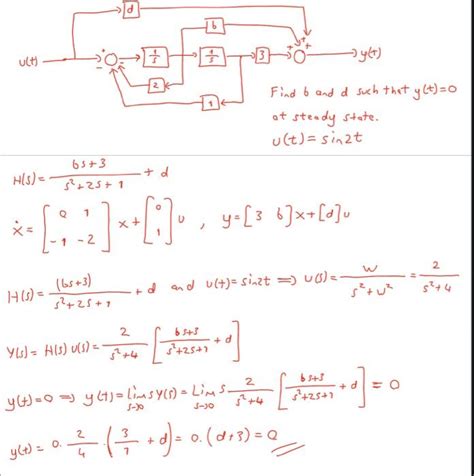 d
b
u(t) + 1/s 1/s 3 + + + y(t)
- -
2
1
Find b and d such that y(t)=0
at steady state.
u(t) = sin2t
H(s) = bs+3 / s²+2s+1 + d
ẋ = [0 1; -1 -2] x + [0; 1] u , y = [3 b] x + [d] u
H(s) = (bs+3) / s²+2s+1 + d and u(t) = sin2t ⟹ U(s) = w / s²+w² = 2 / s²+4
Y(s) = H(s) U(s) = 2 / s²+4 [bs+3 / s²+2s+1 + d]
y(t)=0 ⟹ y(t) = Lim s→0 s Y(s) = Lim s→0 s 2 / s²+4 [bs+3 / s²+2s+1 + d] = 0
y(t) = 0. 2/4 . (3/1 + d) = 0. (d+3) = 0